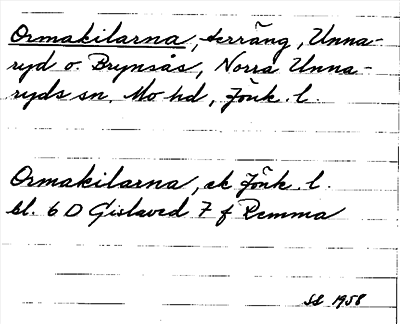 Ormakilarna, terräng, Unna-
ryd o. Brynsås, Norra Unna-
ryds sn. Mo hd, Jönk. l.
Ormakilarna, ek Jönk. l.
bl. 6 D Gislaved 7 f Remma
SL 1958